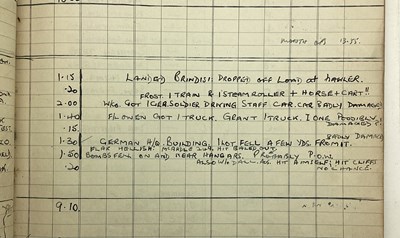 MONTH OPS 13.55.
1.15 LANDED BRINDISI DROPPED OFF LOAD at HAWLER.
.20 FROST. 1 TRAIN & 1 STEAMROLLER + HORSE & CART!!
2.00 W/O. GOT 1 GER. SOLDIER DRIVING STAFF CAR. CAR BADLY DAMAGED
1.40 FLOWEN GOT 1 TRUCK. GRANT 1 TRUCK. 1 ONE POSSIBLY
.15 DAMAGED
BADLY DAMAGED
1.30 GERMAN H/Q. BUILDING, 1 LOT FELL A FEW YDS. FROM IT.
FLAK HELLISH. HIT BALED OUT.
1.50 BOMBS FELL ON AND NEAR HANGARS. PROBABLY P.O.W.
.20 ALSO HIT HIMSELF; HIT CLIFFS
NO CHANCE.
9.10.